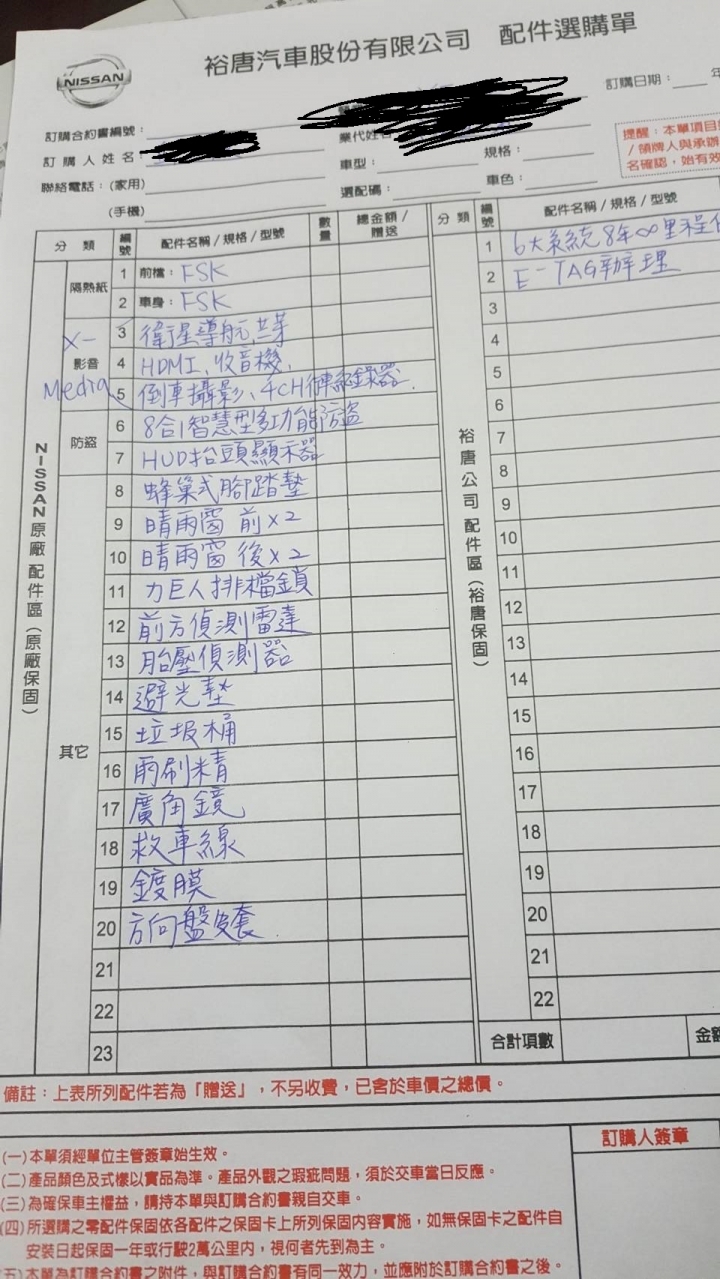 NISSAN
裕唐汽車股份有限公司 配件選購單
訂購日期：
訂購合約書編號：
訂購人姓名：
業代姓名
聯絡電話：(家用)
車型：
規格：
(手機)
選配碼：
車色：
提醒：本單項目
/ 領牌人與承辦
名確認，始有效
分類 編號 配件名稱/規格/型號 數量 總金額/贈送
NISSAN原廠配件區(原廠保固)
隔熱紙
1 前檔：FSK
2 車身：FSK
X-Media 影音
3 衛星導航,藍芽
4 HDMI、收音機、
5 倒車攝影、4CH行車紀錄器.
防盜
6 8合1智慧型多功能防盜
7 HUD抬頭顯示器
其它
8 蜂巢式腳踏墊
9 晴雨窗 前x2
10 晴雨窗 後x2
11 力巨人排檔鎖
12 前方偵測雷達
13 胎壓偵測器
14 避光墊
15 垃圾桶
16 雨刷精
17 廣角鏡
18 救車線
19 鍍膜
20 方向盤皮套
21
22
23
分類 編號 配件名稱/規格/型號
裕唐公司配件區(裕唐保固)
1 6大系統8年∞里程
2 E-TAG辦理
3
4
5
6
7
8
9
10
11
12
13
14
15
16
17
18
19
20
21
22
合計項數
備註：上表所列配件若為「贈送」，不另收費，已含於車價之總價。
(一)本單須經單位主管簽章始生效。
(二)產品顏色及式樣以實品為準。產品外觀之瑕疵問題，須於交車當日反應。
(三)為確保車主權益，請持本單與訂購合約書親自交車。
(四)所選購之零配件保固依各配件之保固卡上所列保固內容實施，如無保固卡之配件自
安裝日起保固一年或行駛2萬公里內，視何者先到為主。
(五)本單為訂購合約書之附件，與訂購合約書有同一效力，並應附於訂購合約書之後。
訂購人簽章